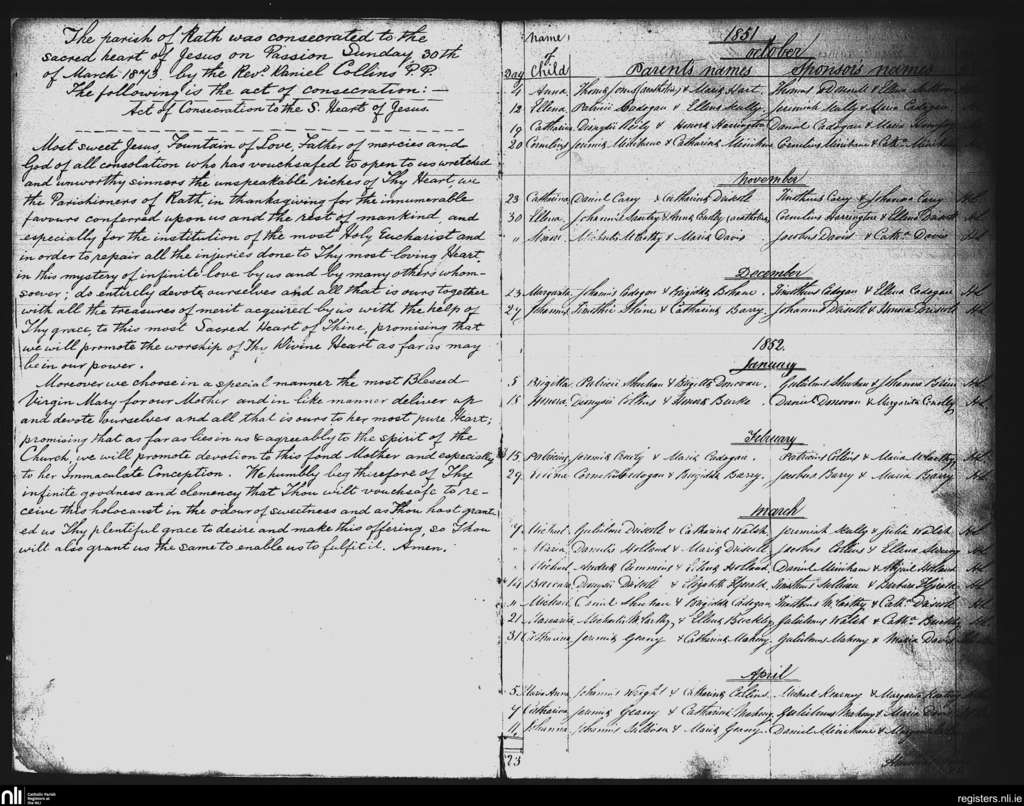 The parish of Rath was consecrated to the
sacred heart of Jesus on Passion Sunday 30th
of March 1873 by the Revd. Daniel Collins P.P.
The following is the act of consecration: —
Act of Consecration to the S. Heart of Jesus.
Most sweet Jesus, Fountain of Love, Father of mercies and
God of all consolation who has vouchsafed to open to us wretched
and unworthy sinners the unspeakable riches of Thy Heart, we
the Parishioners of Rath, in thanksgiving for the innumerable
favours conferred upon us and the rest of mankind, and
especially for the institution of the most Holy Eucharist and
in order to repair all the injuries done to Thy most loving Heart,
in this mystery of infinite love by us and by many others whom-
soever; do entirely devote ourselves and all that is ours together
with all the treasures of merit acquired by us with the help of
Thy grace, to this most Sacred Heart of Thine, promising that
we will promote the worship of Thy Divine Heart as far as may
be in our power.
Moreover we choose in a special manner the most Blessed
Virgin Mary for our Mother and in like manner deliver up
and devote ourselves and all that is ours to her most pure Heart;
promising that as far as lies in us & agreeably to the spirit of the
Church, we will promote devotion to this fond Mother and especially
to her Immaculate Conception. We humbly beg therefore of Thy
infinite goodness and clemency that Thou wilt vouchsafe to re-
ceive this holocaust in the odour of sweetness and as Thou hast grant-
ed us Thy plentiful grace to desire and make this offering, so Thou
wilt also grant us the same to enable us to fulfil it. Amen.
1851
October
Day name of Child Parents names Sponsors names
4 Anna & Maria Hart Thomas
12 Ellena Patricii Cadogan & Ellena Maria Cadogan
19 Catharina & Honora Harrington Daniel Cadogan & Maria
20 Cornelius Jeremiæ Minihane & Catharina Minihane Cornelius Minihane & Cath. Minihane
November
23 Catharina Daniel Carey & Catharina Driscoll Timotheus Carey & Johanna Carey
30 Ellena Johannis Cornelius Harrington & Ellena Driscoll
" Michaelis McCarthy & Maria Davis Jacobus Davis & Cath. Davis
December
23 Margarita Johannis Cadogan & Brigitta Bohane. Timotheus Cadogan & Ellena Cadogan
27 Johannis & Catharina Barry. Johannes Driscoll & Honora Driscoll
1852.
January
5 Brigitta Patricii Sheehan & Brigitta Donovan. Gulielmus Sheehan & Johanna
18 Honora Dionysii Collins & Honora Burke. Daniel Donovan & Margarita
February
15 Patricius Jeremiæ & Maria Cadogan. Patricius Collins & Maria McCarthy
29 Cornelii Cadogan & Brigitta Barry. Jacobus Barry & Maria Barry
March
7 Michael Gulielmi Driscoll & Catharina Walsh. Jeremiah & Julia Walsh
" Maria Danielis Holland & Maria Driscoll Jacobus Collins & Ellena
" Michael Andreæ Cummins & Holland. Daniel Minihane & Abigail Holland
14 Barbara Dionysii Driscoll & Elizabeth Timotheus Sullivan & Barbara
" Michael Sheehan & Brigitta Cadogan Timotheus McCarthy & Cath. Driscoll
21 Michaelis McCarthy & Ellena Buckley Gulielmus Walsh & Cath. Buckley
31 Catharina Jeremiæ Geany & Catharina Mahony. Gulielmus Mahony & Maria Davis
April
5 Maria Anna Johannis Wright & Catharina Collins. Michael Kearney & Margarita
7 Catharina Jeremiæ Geany & Catharina Mahony Gulielmus Mahony & Maria
11 Johanna Johannis Sullivan & Maria Geany. Daniel Minihane &
23
nli Catholic Parish Registers at the NLI
registers.nli.ie